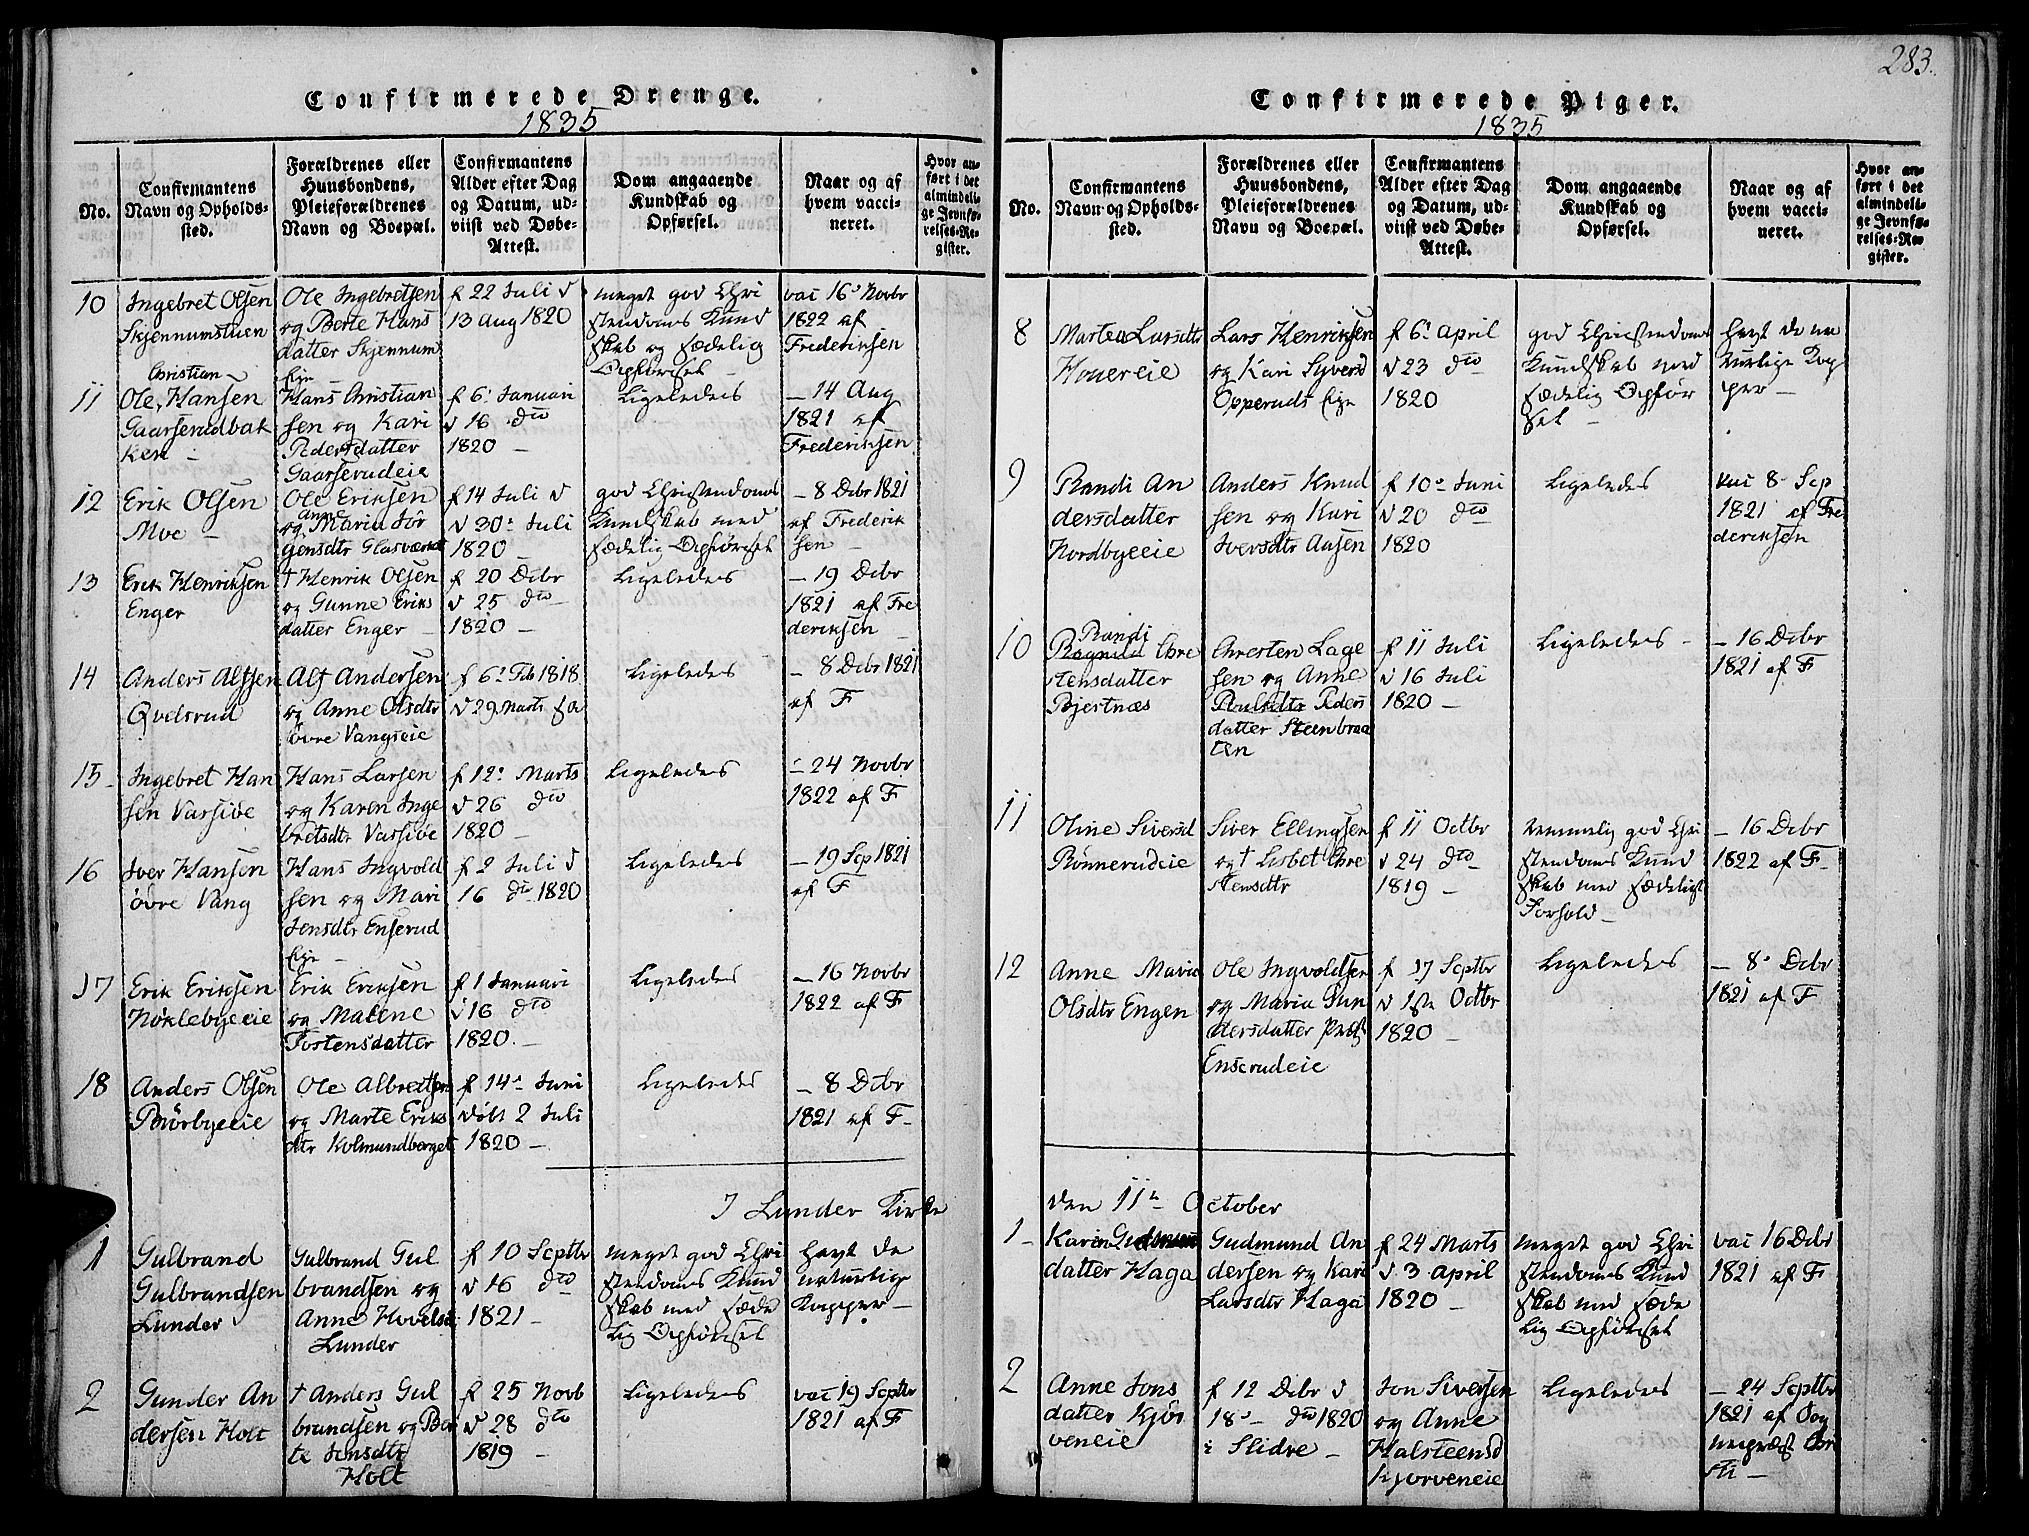 Confirmerede Drenge.
1835
No.
Confirmantens
Navn og Opholds-
sted.
Forældrenes eller
Huusbondens,
Pleieforældrenes
Navn og Boepæl.
Confirmantens
Alder efter Dag
og Datum, ud-
viist ved Døbe-
Attest.
Dom angaaende
Kundskab og
Opførsel.
Naar og af
hvem vacci-
neret.
Hvor an-
ført i det
almindeli-
ge Jevnfø-
relses-Re-
gister.
10
Ingebret Olsen
Skjennumstuen
Ole Ingebretsen
og Berte Hans
datter Skjennum
Eje
f 22 Juli d
13 Aug 1820
meget god Chri
stendoms Kund
skab og sædelig
Opførsel
vac 16 Novbr
1822 af
Frederiksen
11
Christian
Ole, Hansen
Gaarserudbak
ken
Hans Christian
sen og Kari
Pedersdatter
Gaarserudeie
f 6 Januari
d 16 dto
1820
Ligeledes
14 Aug
1821 af
Frederiksen
12
Erik Olsen
Moe
Ole Eriksen
Anne
og Maria Jör
gensdtr Glasværket
f 14 Juli d
d 30 Juli
1820
god Christendoms
Kundskab med
sædelig Opførsel
8 Dcbr 1821
af Frederik
sen
13
Erik Henriksen
Enger
† Henrik Olsen
og Gunne Eriks
datter Enger
f 20 Dcbr
d 25 dto
1820
Ligeledes
19 Dcbr
1821 af Fre
deriksen
14
Anders Alfsen
Qvelsrud
Alf Andersen
og Anne Olsdtr
övre Vangseie
f 6 Feb 1818
d 29 Marts
Ligeledes
8 Dcbr 1821
af F
15
Ingebret Han
sen Vassive
Hans Larsen
og Karen Inge
bretsdtr Vassive
f 12 Marts
d 26 dto
1820
Ligeledes
24 Novbr
1822 af F
16
Iver Hansen
övre Vang
Hans Ingvold
sen og Mari
Jensdtr Enserud
Eje
f 2 Juli d
16 dto 1820
Ligeledes
19 Sep 1821
af F
17
Erik Eriksen
Nöklebyeeie
Erik Eriksen
og Malene
Tostensdatter
f 1 Januari
d 16 dto
1820
Ligeledes
16 Novbr
1822 af F
18
Anders Olsen
Börbyeeie
Ole Albretsen
og Marte Eriks
dtr Kolmundberget
f 14 Juni
döbt 2 Juli
1820
Ligeledes
8 Dcbr
1821 af F
I Lunder Kirke
1
Gulbrand
Gulbrandsen
Lunder
Gulbrand Gul
brandsen og
Anne Hovelsd
Lunder
f 10 Septbr
d 16 dto
1821
meget god Chri
stendoms Kund
skab med sæde
lig Opførsel
havt de
naturlige
Kopper
2
Gunder An
dersen Holt
† Anders Gul
brandsen og Ber
te Jensdtr
Holt
f 25 Novb
d 28 dto
1819
Ligeledes
vac 19 Septbr
1821 af F
283.
Confirmerede Piger.
1835
No.
Confirmantens
Navn og Opholds-
sted.
Forældrenes eller
Huusbondens,
Pleieforældrenes
Navn og Boepæl.
Confirmantens
Alder efter Dag
og Datum, ud-
viist ved Døbe-
Attest.
Dom angaaende
Kundskab og
Opførsel.
Naar og af
hvem vacci-
neret.
Hvor an-
ført i det
almindeli-
ge Jevnfø-
relses-Re-
gister.
8
Martea Larsdtr
Houereie
Lars Henriksen
og Kari Syversd
Opperuds Eje
f 6 April
d 23 dto
1820
god Christendoms
Kundskab med
sædelig Opför
sel
havt de na
turlige Kop
per
9
Randi An
dersdatter
Nordbyeeie
Anders Knud
sen og Kari
Iversdtr Aasen
f 10 Juni
d 20 dto
1820
Ligeledes
vac 8 Sep
1821 af Fre
deriksen
10
Randi
Ragnild Chre
stensdatter
Bjertnæs
Chresten Lage
sen og Anne
Paulsdtr Peders
datter Steenbraa
ten
f 11 Juli
d 16 Juli
1820
Ligeledes
16 Dcbr
1821 af F
11
Oline Siversd
Rønnerudeie
Siver Ellingsen
og † Lisbet Chre
stensdtr
f 11 Octbr
d 24 dto
1819
temmelig god Chri
stendoms Kund
skab med sædeligt
Forhold
16 Dcbr
1822 af F
12
Anne Marie
Olsdtr Engen
Ole Ingvoldsen
og Maria Gun
dersdatter
Enserudeie
f 17 Septbr
d 1ste Octbr
1820
Ligeledes
8 Dcbr
1821 af F
den 11 October
1
Karen Gudmunds
datter Haga
Gudmund An
dersen og Kari
Larsdtr Haga
f 24 Marts
d 3 April
1820
meget god Chri
stendoms Kund
skab med sæde
lig Opførsel
vac 16 Dcbr
1821 af F
2
Anne Jons
datter Kjör
veneie
f 12 Dcbr d
18 dto 1820
i Slidre
Jon Siversen
og Anne
Halsteensd
Kjorveneie
Ligeledes
24 Septbr
1821 af Sog
nepræst Chri
sti